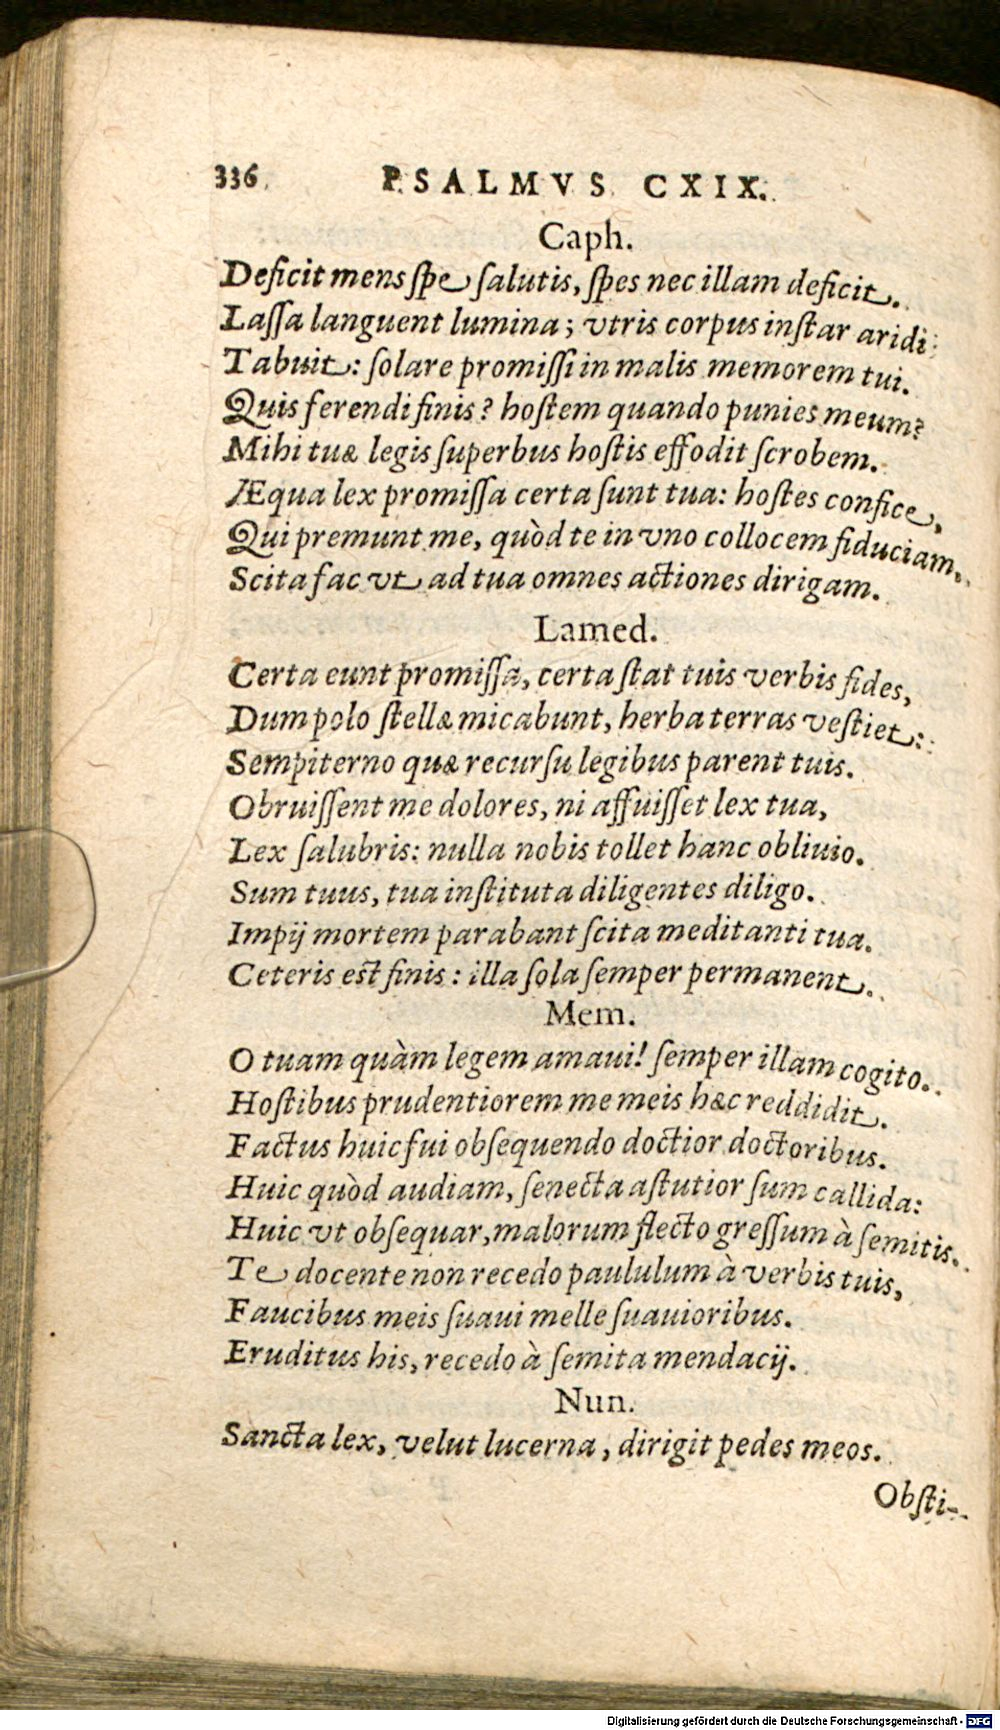 336 PSALMVS CXIX.
Caph.
Deficit mens ſpe ſalutis, ſpes nec illam deficit.
Laſſa languent lumina; vtris corpus inſtar aridi
Tabuit: ſolare promiſſi in malis memorem tui.
Quis ferendi finis? hoſtem quando punies meum?
Mihi tuæ legis ſuperbus hoſtis effodit ſcrobem.
Æqua lex promiſſa certa ſunt tua: hoſtes confice,
Qui premunt me, quòd te in vno collocem fiduciam.
Scita fac vt ad tua omnes actiones dirigam.
Lamed.
Certa eunt promiſſa, certa ſtat tuis verbis fides,
Dum polo ſtellæ micabunt, herba terras veſtiet:
Sempiterno quæ recurſu legibus parent tuis.
Obruiſſent me dolores, ni affuiſſet lex tua,
Lex ſalubris: nulla nobis tollet hanc obliuio.
Sum tuus, tua inſtituta diligentes diligo.
Impij mortem parabant ſcita meditanti tua.
Ceteris eſt finis: illa ſola ſemper permanent.
Mem.
O tuam quàm legem amaui! ſemper illam cogito.
Hoſtibus prudentiorem me meis hæc reddidit.
Factus huic fui obſequendo doctior doctoribus.
Huic quòd audiam, ſenecta aſtutior ſum callida:
Huic vt obſequar, malorum flecto greſſum à ſemitis.
Te docente non recedo paululum à verbis tuis,
Faucibus meis ſuaui melle ſuauioribus.
Eruditus his, recedo à ſemita mendacij.
Nun.
Sancta lex, velut lucerna, dirigit pedes meos.
Obſti-
Digitalisierung gefördert durch die Deutsche Forschungsgemeinschaft - DFG